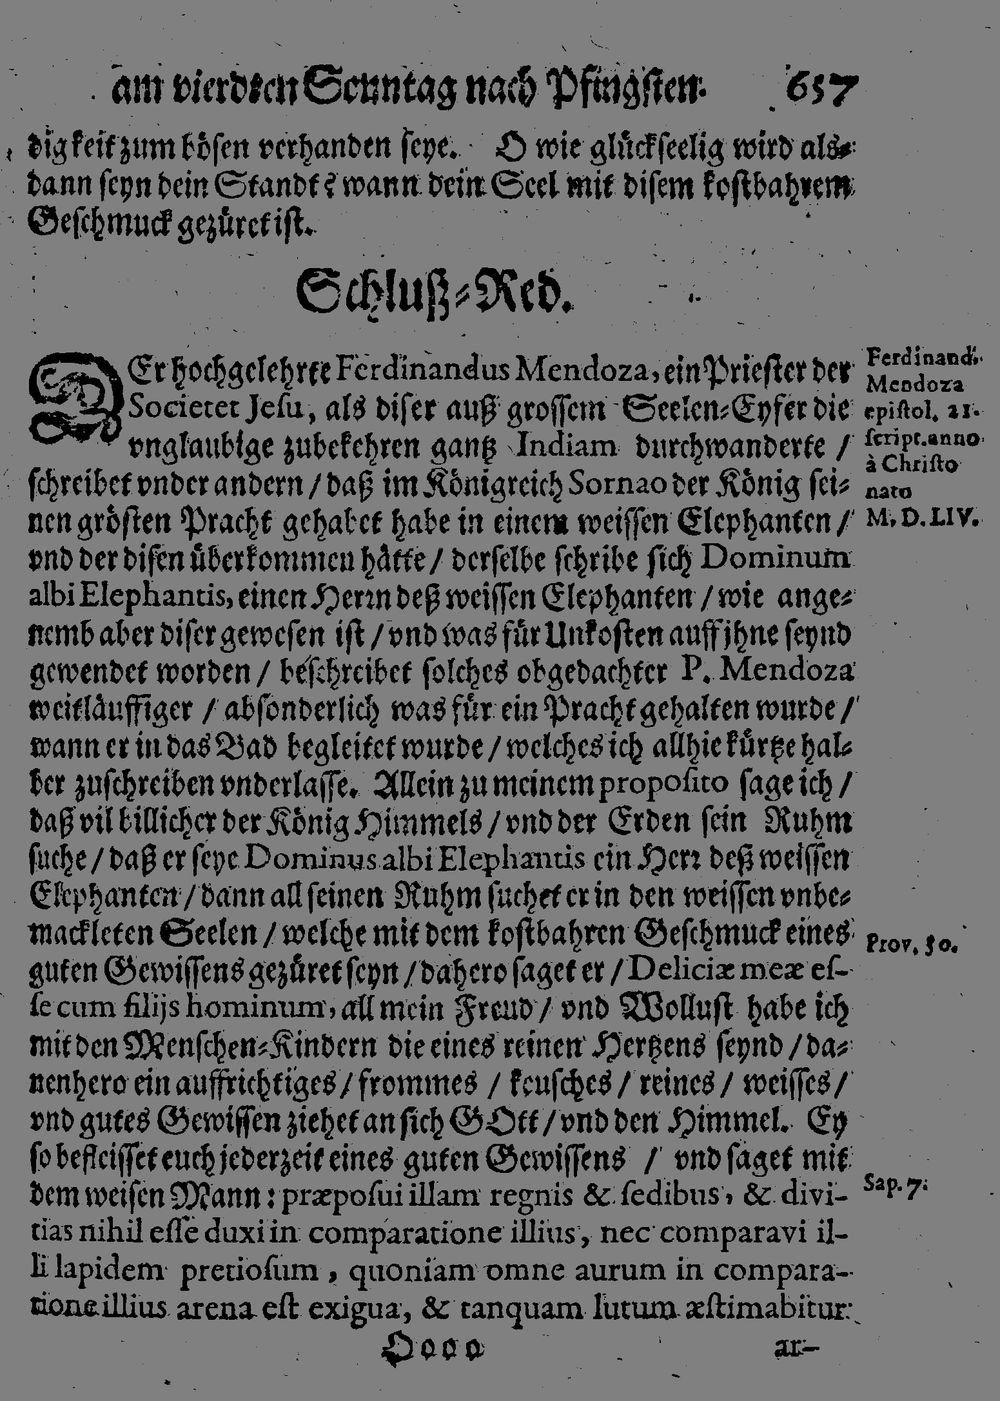 am vierdten Sonntag nach Pfingsten. 657
digkeit zum bösen verhanden seye. O wie glückseelig wird als⸗
dann seyn dein Standt? wann dein Seel mit disem kostbahrem
Geschmuck gezüret ist.
Schluß⸗Red.
DEr hochgelehrte Ferdinandus Mendoza, ein Priester der
Societet Jesu, als diser auß grossem Seelen⸗Eyfer die
vnglaubige zubekehren gantz Indiam durchwanderte /
schreibet vnder andern / daß im Königreich Sornao der König sei⸗
nen grösten Pracht gehabet habe in einem weissen Elephanten /
vnd der disen überkommen hätte / derselbe schribe sich Dominum
albi Elephantis, einen Herrn deß weissen Elephanten / wie ange⸗
nemb aber diser gewesen ist / vnd was für Unkosten auff jhne seynd
gewendet worden / beschreibet solches obgedachter P. Mendoza
weitläuffiger / absonderlich was für ein Pracht gehalten wurde /
wann er in das Bad begleitet wurde / welches ich allhie kürtze hal⸗
ber zuschreiben vnderlasse. Allein zu meinem proposito sage ich /
daß vil billicher der König Himmels / vnd der Erden sein Ruhm
suche / daß er seye Dominus albi Elephantis ein Herr deß weissen
Elephanten / dann all seinen Ruhm suchet er in den weissen vnbe⸗
mackleten Seelen / welche mit dem kostbahren Geschmuck eines
guten Gewissens gezüret seyn / dahero saget er / Deliciæ meæ es-
se cum filijs hominum, all mein Freud / vnd Wollust habe ich
mit den Menschen⸗Kindern die eines reinen Hertzens seynd / da⸗
nenhero ein auffrichtiges / frommes / keusches / reines / weisses /
vnd gutes Gewissen ziehet an sich GOtt / vnd den Himmel. Ey
so befleisset euch jederzeit eines guten Gewissens / vnd saget mit
dem weisen Mann: præposui illam regnis & sedibus, & divi-
tias nihil esse duxi in comparatione illius, nec comparavi il-
li lapidem pretiosum, quoniam omne aurum in compara-
tione illius arena est exigua, & tanquam lutum æstimabitur
Oooo ar-
Ferdinand.
Mendoza
epistol. 21.
script. anno
à Christo
nato
M. D. LIV.
Prov. 30.
Sap. 7.